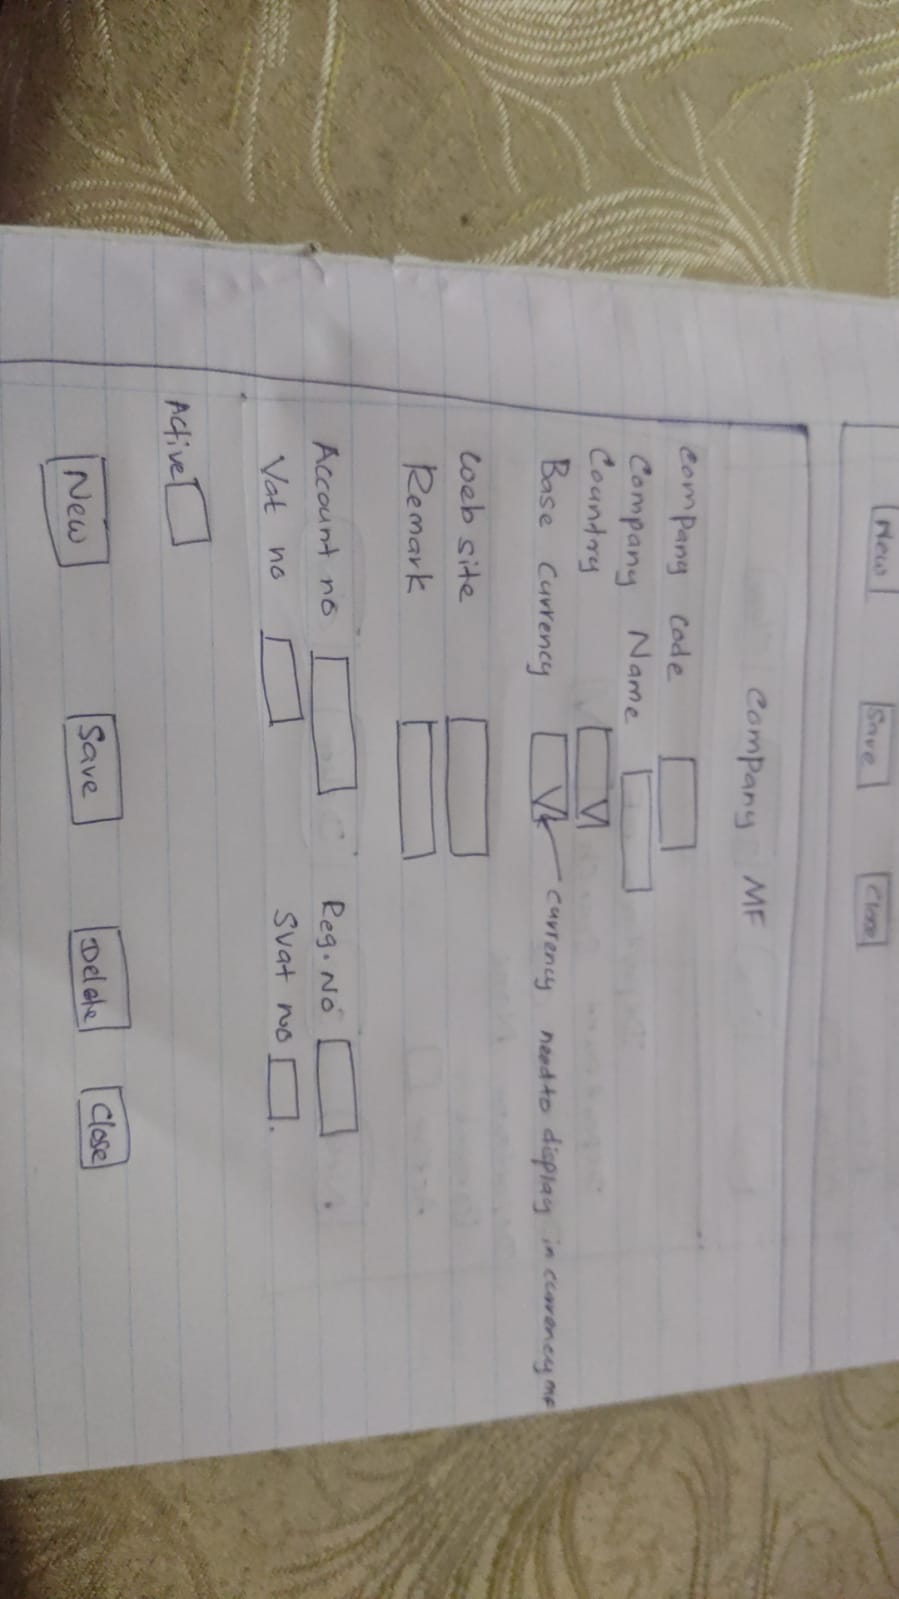 New Save Close
Company MF
Company Code
Company Name
Country
Base Currency currency need to display in currency MF
Web site
Remark
Account no Reg. No
Vat no SVat no
Active
New Save Delete Close